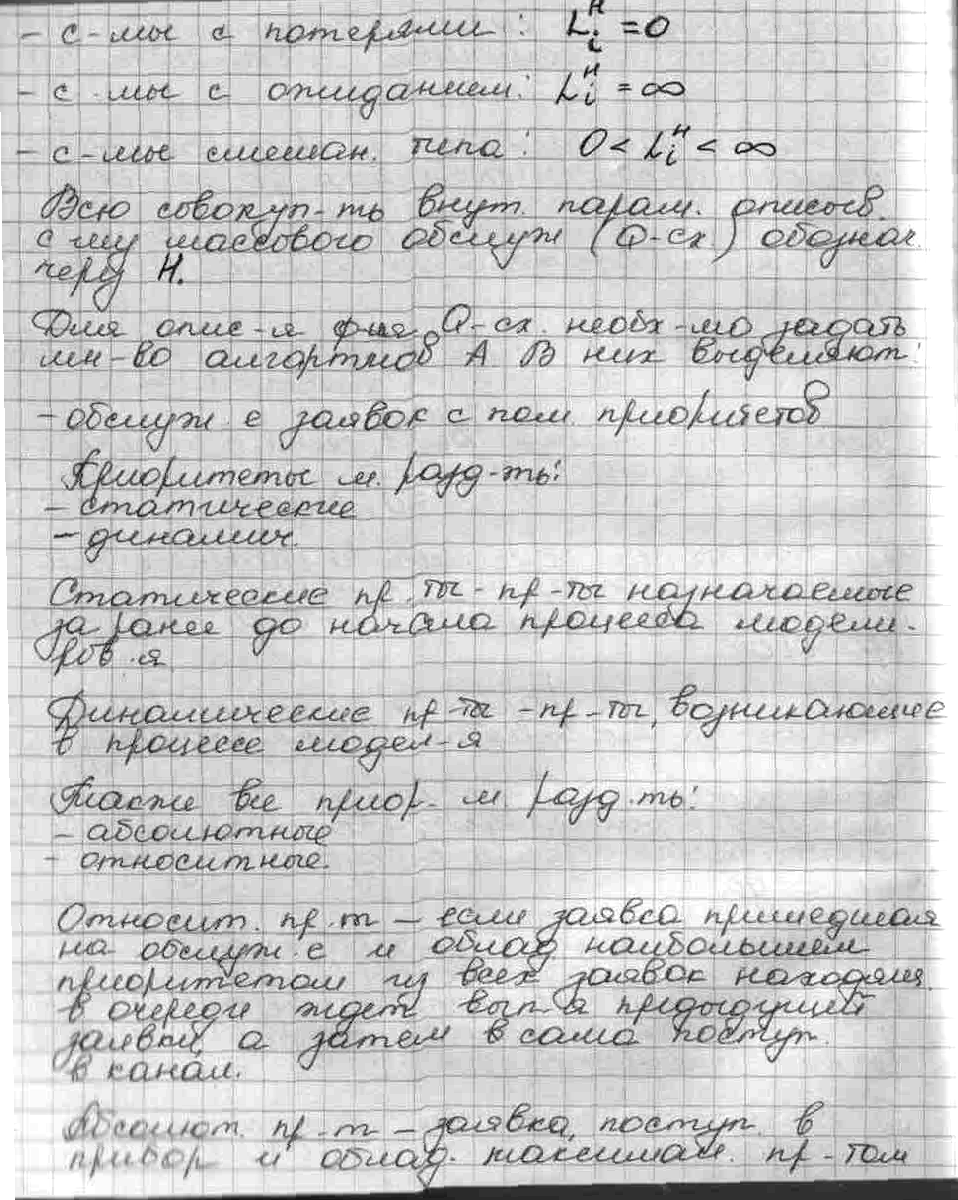 - с-мы с потерями: Lᵢᴴ = 0
- с-мы с ожиданием: Lᵢᴴ = ∞
- с-мы смешан. типа: 0 < Lᵢᴴ < ∞
Всю совокуп-ть внут. парам. описыв.
с-му массового обслуж (Q-сх.) обознач.
через Н.
Для опис-я ф-ия Q-сх. необх-мо задать
мн-во алгортмов А В них выделяют:
- обслуж-е заявок с пом. приоритетов
Приоритеты м. разд-ть:
- статические
- динамич.
Статические пр-ты - пр-ты назначаемые
заранее до начала процесса модели-
ров-я
Динамические пр-ты - пр-ты, возникающие
в процессе модел-я
Также все приор- м разд-ть:
- абсолютные
- относитные.
Относит. пр-т – если заявка пришедшая
на обслуж-е и облад наибольшем
приоритетом из всех заявок находящ.
в очереди ждет вып-я предыдущей
заявки, а затем в сама поступ.
в канал.
Абсолют. пр-т – заявка, поступ. в
прибор и облад. максимал. пр-том